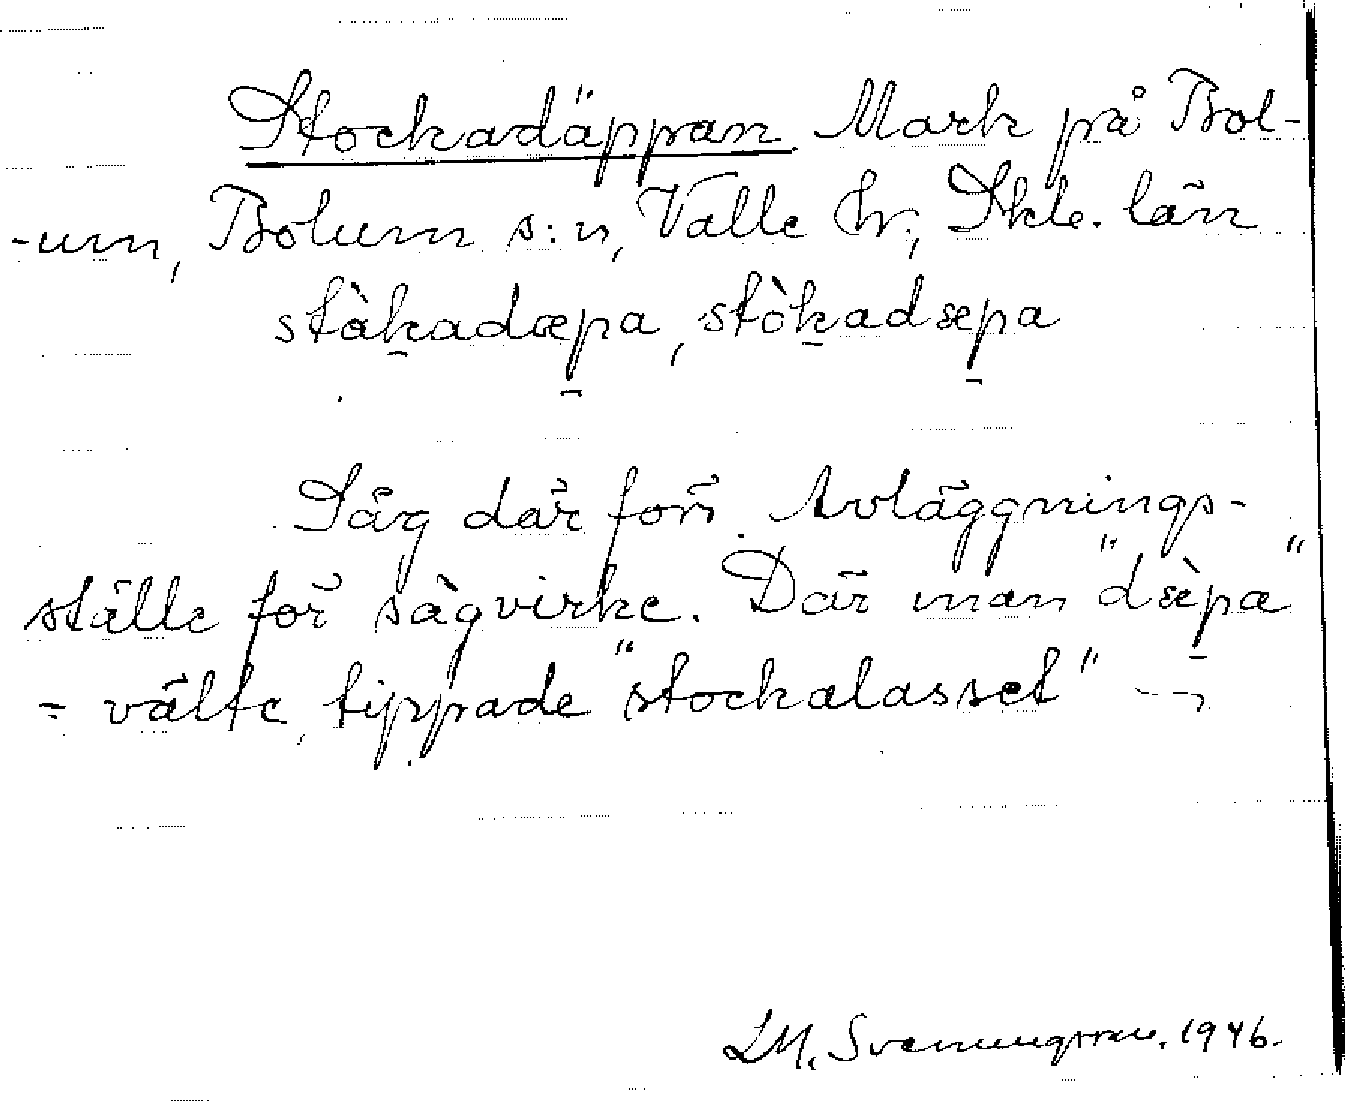 Stockadäppan Mark på Bol-
-um, Bolum s:n, Valle hr, Skb. län
stàkadæpa, stòkadæpa
Såg där förr. Avläggnings-
ställe för sågvirke. Där man "dæ̀pa"
= välte, tippade "stockalasset" ---
LM. Svenungsson. 1946.